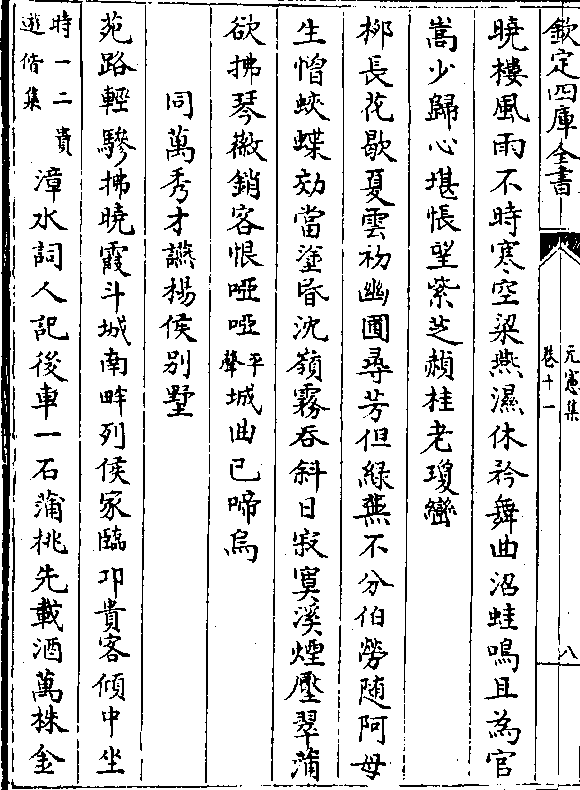 欽定四庫全書
元憲集
卷十一
八
曉樓風雨不時寒空梁燕濕休矜舞曲沼蛙鳴且為官
嵩少歸心堪悵望紫芝赬桂老瓊巒
柳長花歇夏雲初幽圃尋芳但綠蕪不分伯勞隨阿母
生憎蛺蝶效當塗昏沈嶺霧吞斜日寂寞溪煙壓翠蒲
欲拂琴徽銷客恨啞啞平聲城曲已啼烏
同萬秀才讌楊侯別墅
苑路輕驂拂曉霞斗城南畔列侯家臨卭貴客傾中坐
時一二貴遊偕集漳水詞人記後車一石蒲桃先載酒萬株金